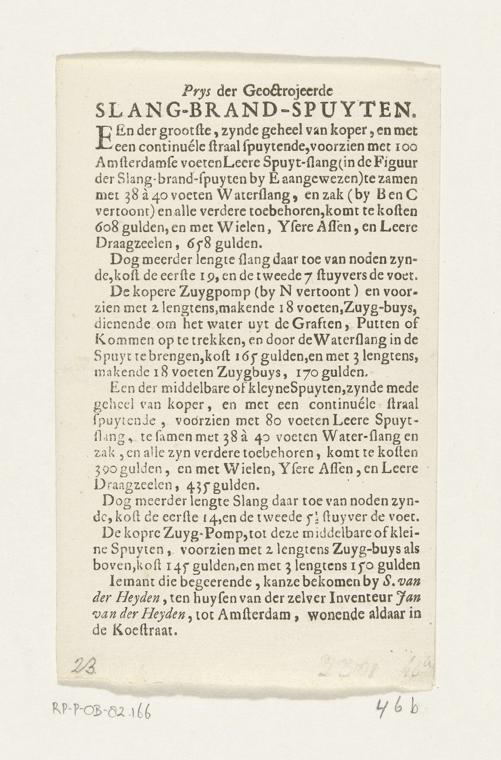 Prys der Geoctrojeerde
SLANG-BRAND-SPUYTEN.
EEn der grootſte, zynde geheel van koper, en met
een continuéle ſtraal ſpuytende, voorzien met 100
Amſterdamſe voeten Leere Spuyt-ſlang (in de Figuur
der Slang-brand-ſpuyten by E aangewezen) te zamen
met 38 à 40 voeten Waterſlang, en zak (by B en C
vertoont) en alle verdere toebehoren, komt te koſten
608 gulden, en met Wielen, Yſere Aſſen, en Leere
Draagzeelen, 658 gulden.
Dog meerder lengte ſlang daar toe van noden zyn-
de, koſt de eerſte 19, en de tweede 7 ſtuyvers de voet.
De kopere Zuygpomp (by N vertoont) en voor-
zien met 2 lengtens, makende 18 voeten, Zuyg-buys,
dienende om het water uyt de Graften, Putten of
Kommen op te trekken, en door de Waterſlang in de
Spuyt te brengen, koſt 165 gulden, en met 3 lengtens,
makende 18 voeten Zuygbuys, 170 gulden.
Een der middelbare of kleyne Spuyten, zynde mede
geheel van koper, en met een continuéle ſtraal
ſpuytende, voorzien met 80 voeten Leere Spuyt-
ſlang, te ſamen met 38 à 40 voeten Water-ſlang en
zak, en alle zyn verdere toebehoren, komt te koſten
390 gulden, en met Wielen, Yſere Aſſen, en Leere
Draagzeelen, 435 gulden.
Dog meerder lengte Slang daar toe van noden zyn-
de, koſt de eerſte 14, en de tweede 5½ ſtuyver de voet.
De kopre Zuyg-Pomp, tot deze middelbare of klei-
ne Spuyten, voorzien met 2 lengtens Zuyg-buys als
boven, koſt 145 gulden, en met 3 lengtens 150 gulden
Iemant die begeerende, kanze bekomen by S. van
der Heyden, ten huyſen van der zelver Inventeur Jan
van der Heyden, tot Amſterdam, wonende aldaar in
de Koeſtraat.
23
RP-P-OB-82.166
46b